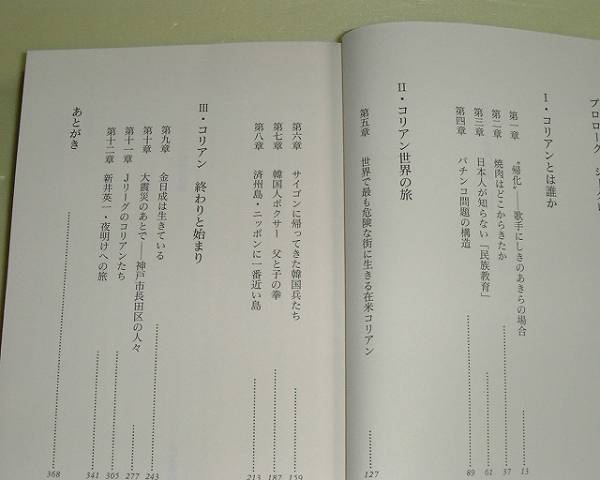 プロローグ
I・コリアンとは誰か
第一章 “帰化”——歌手にしきのあきらの場合 13
第二章 焼肉はどこからきたか 37
第三章 日本人が知らない「民族教育」 61
第四章 パチンコ問題の構造 89
II・コリアン世界の旅
第五章 世界で最も危険な街に生きる在米コリアン 127
第六章 サイゴンに帰ってきた韓国兵たち 159
第七章 韓国人ボクサー 父と子の拳 187
第八章 済州島・ニッポンに一番近い島 213
III・コリアン 終わりと始まり
第九章 金日成は生きている 243
第十章 大震災のあとで——神戸市長田区の人々 277
第十一章 Jリーグのコリアンたち 305
第十二章 新井英一・夜明けへの旅 341
あとがき 368